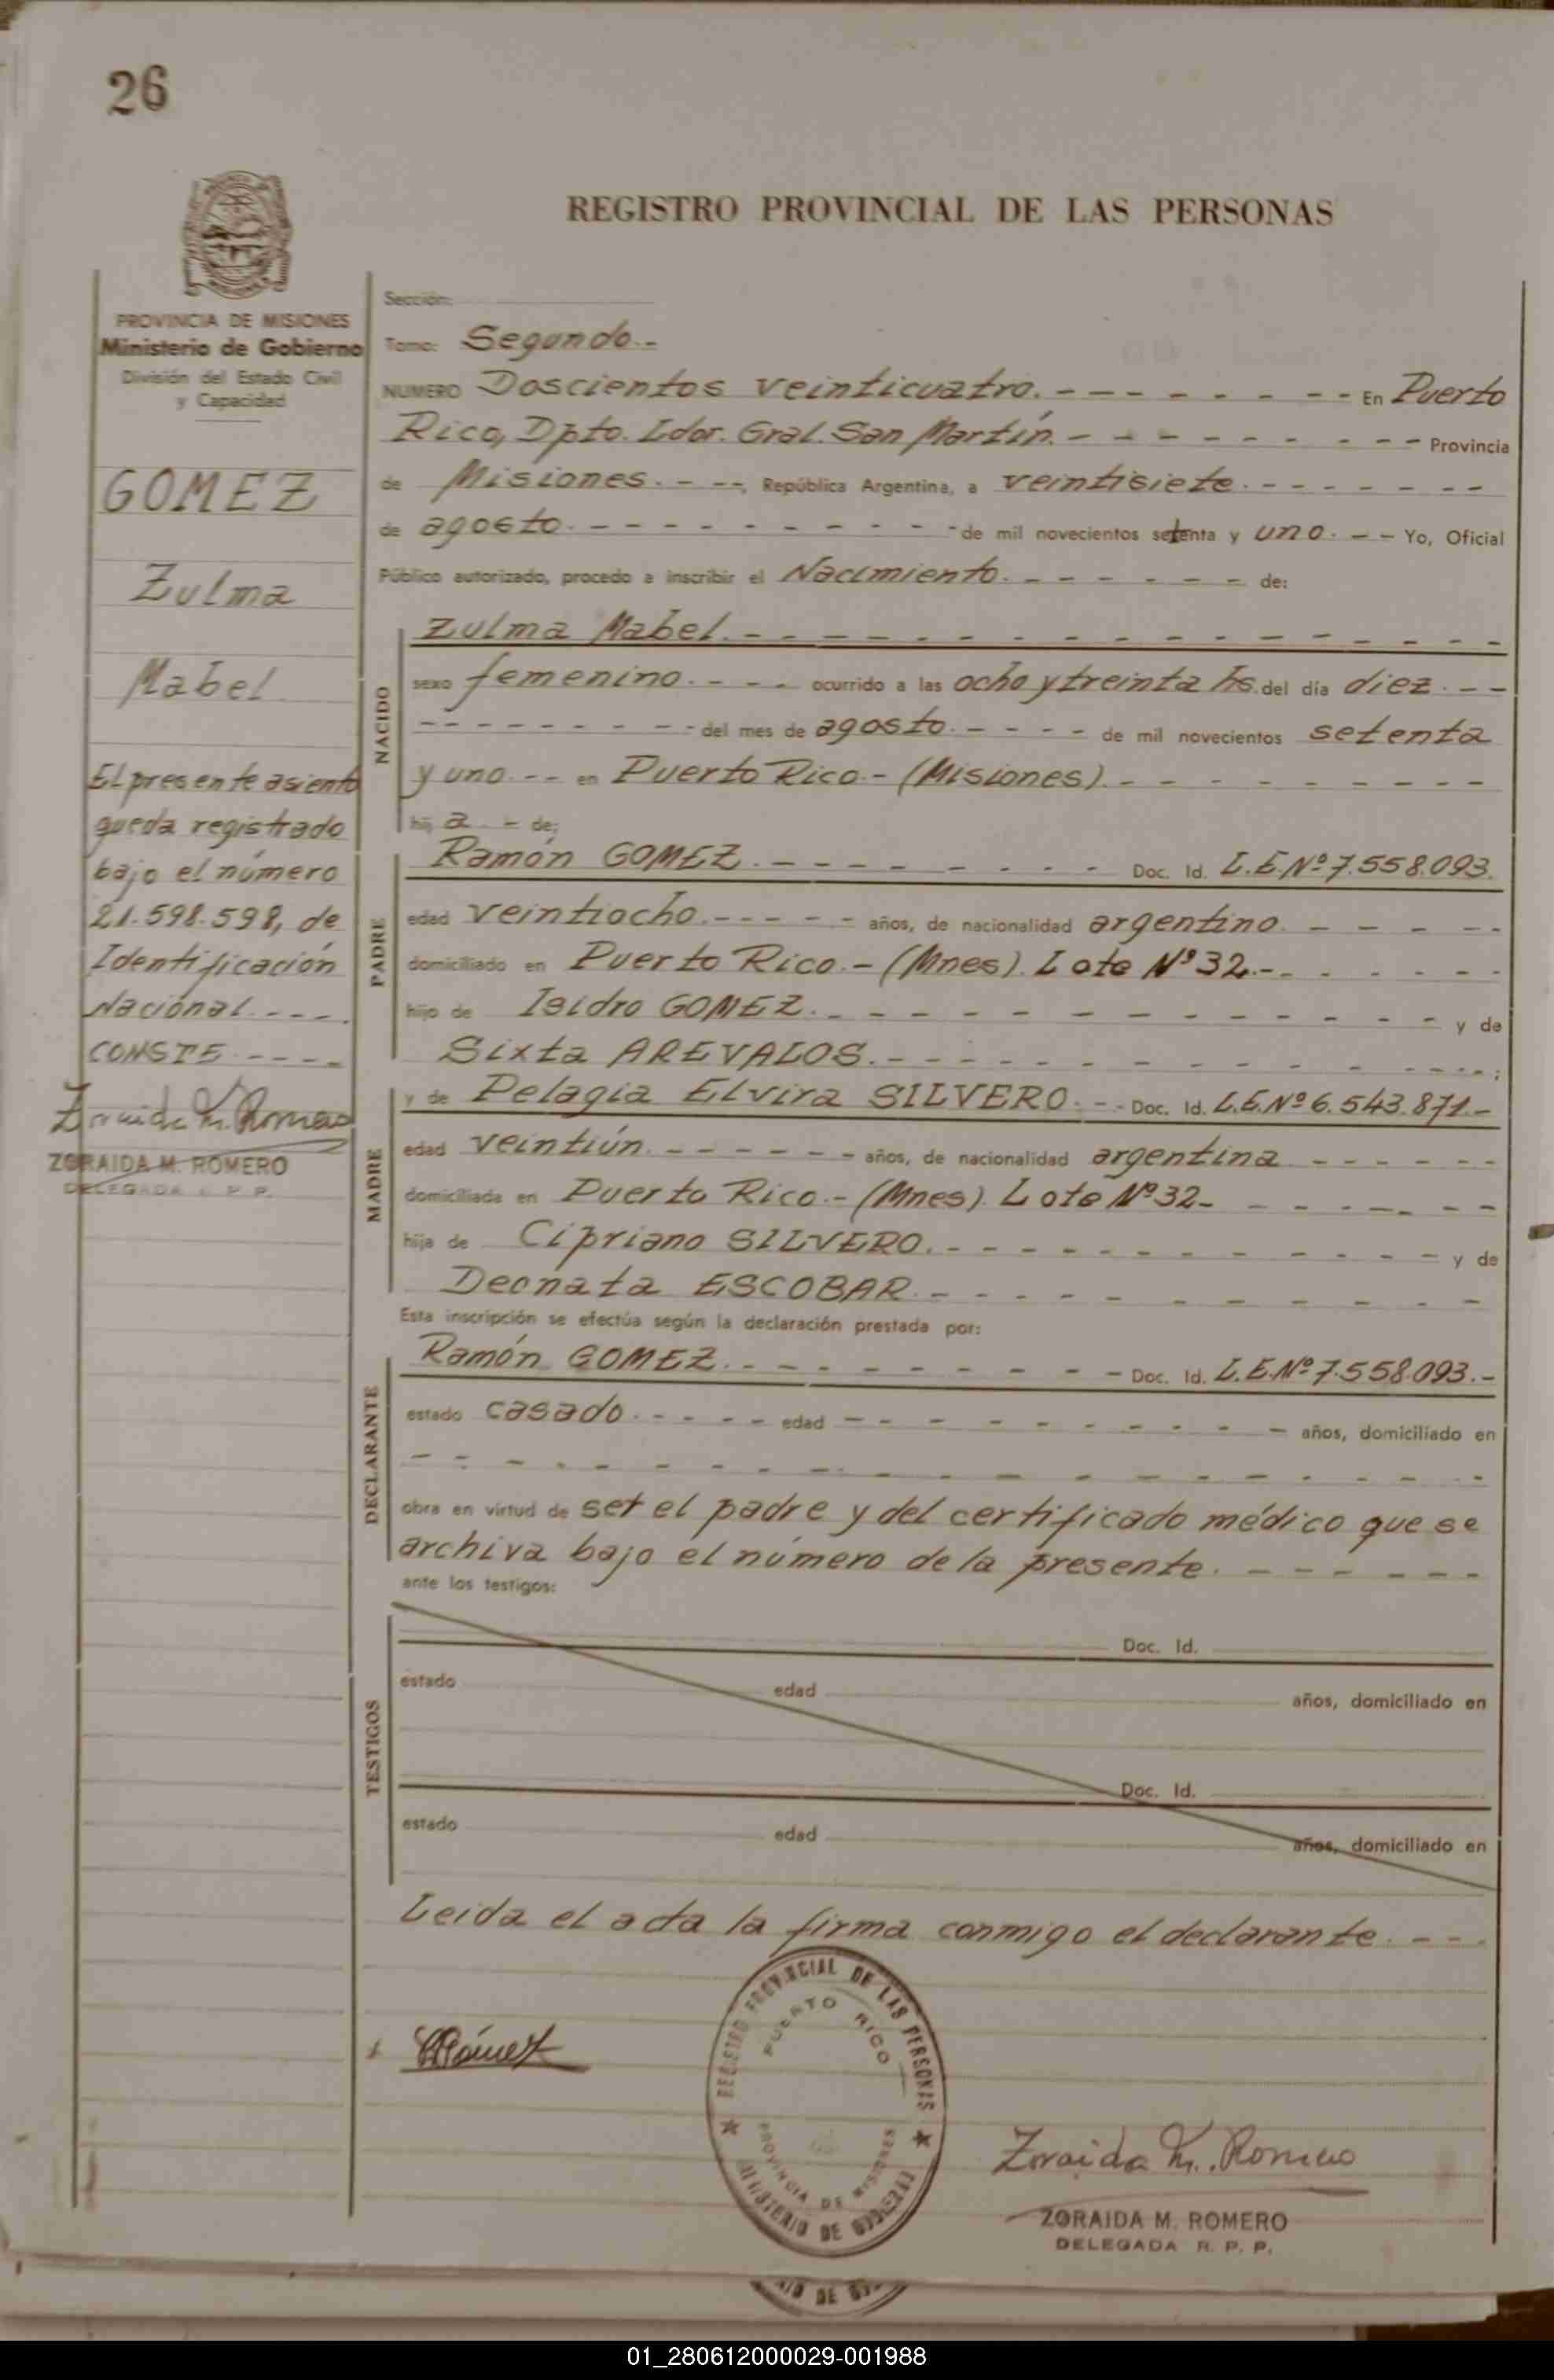 26
REGISTRO PROVINCIAL DE LAS PERSONAS
PROVINCIA DE MISIONES
Ministerio de Gobierno
División del Estado Civil
y Capacidad
GOMEZ
Zulma
Mabel
El presente asiento
queda registrado
bajo el número
21.598.598, de
Identificación
Nacional.----.
CONSTE-----
Zoraida M. Romero
ZORAIDA M. ROMERO
DELEGADA R. P. P.
Sección:
Tomo: Segundo.-
NUMERO Doscientos veinticuatro.-------- En Puerto
Rico, Dpto. Ldor. Gral. San Martín.--------- Provincia
de Misiones.---, República Argentina, a veintisiete.-------
de agosto.---------- de mil novecientos setenta y uno.-- Yo, Oficial
Público autorizado, procedo a inscribir el Nacimiento.------ de:
Zulma Mabel.---------------
NACIDO
sexo femenino.---- ocurrido a las ocho y treinta hs. del día diez.--
--------- del mes de agosto.---- de mil novecientos setenta
y uno.-- en Puerto Rico.-(Misiones).--------
hij a.- de:
PADRE
Ramón GOMEZ.-------- Doc. Id. L.E.Nº7.558.093.
edad veintiocho.----- años, de nacionalidad argentino.-----
domiciliado en Puerto Rico.-(Mnes). Lote Nº32.------
hijo de Isidro GOMEZ.------------ y de
Sixta AREVALOS.-------------;
MADRE
y de Pelagia Elvira SILVERO.-- Doc. Id. L.E.Nº6.543.871.-
edad veintiún.------ años, de nacionalidad argentina------
domiciliada en Puerto Rico.-(Mnes). Lote Nº32-------
hija de Cipriano SILVERO.----------- y de
Deonata ESCOBAR.----------
Esta inscripción se efectúa según la declaración prestada por:
DECLARANTE
Ramón GOMEZ.-------- Doc. Id. L.E.Nº7.558.093.-
estado casado.----- edad --------- años, domiciliado en
-----------------
obra en virtud de ser el padre y del certificado médico que se
archiva bajo el número de la presente.------
ante los testigos:
TESTIGOS
Doc. Id.
estado edad años, domiciliado en
Doc. Id.
estado edad años, domiciliado en
Leida el acta la firma conmigo el declarante.---.
REGISTRO PROVINCIAL DE LAS PERSONAS
PUERTO RICO
PROVINCIA DE MISIONES
MINISTERIO DE GOBIERNO
Zoraida M. Romero
ZORAIDA M. ROMERO
DELEGADA R. P. P.
01_280612000029-001988